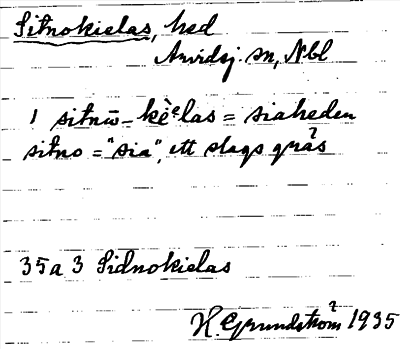 Sitnokielas, hed
Arvidsj. sn, Nbl
1 sitnū-kè͔ᵉlas = siaheden
sitno = "sia", ett slags gräs
35 a 3 Sidnokielas
H. Grundström 1935